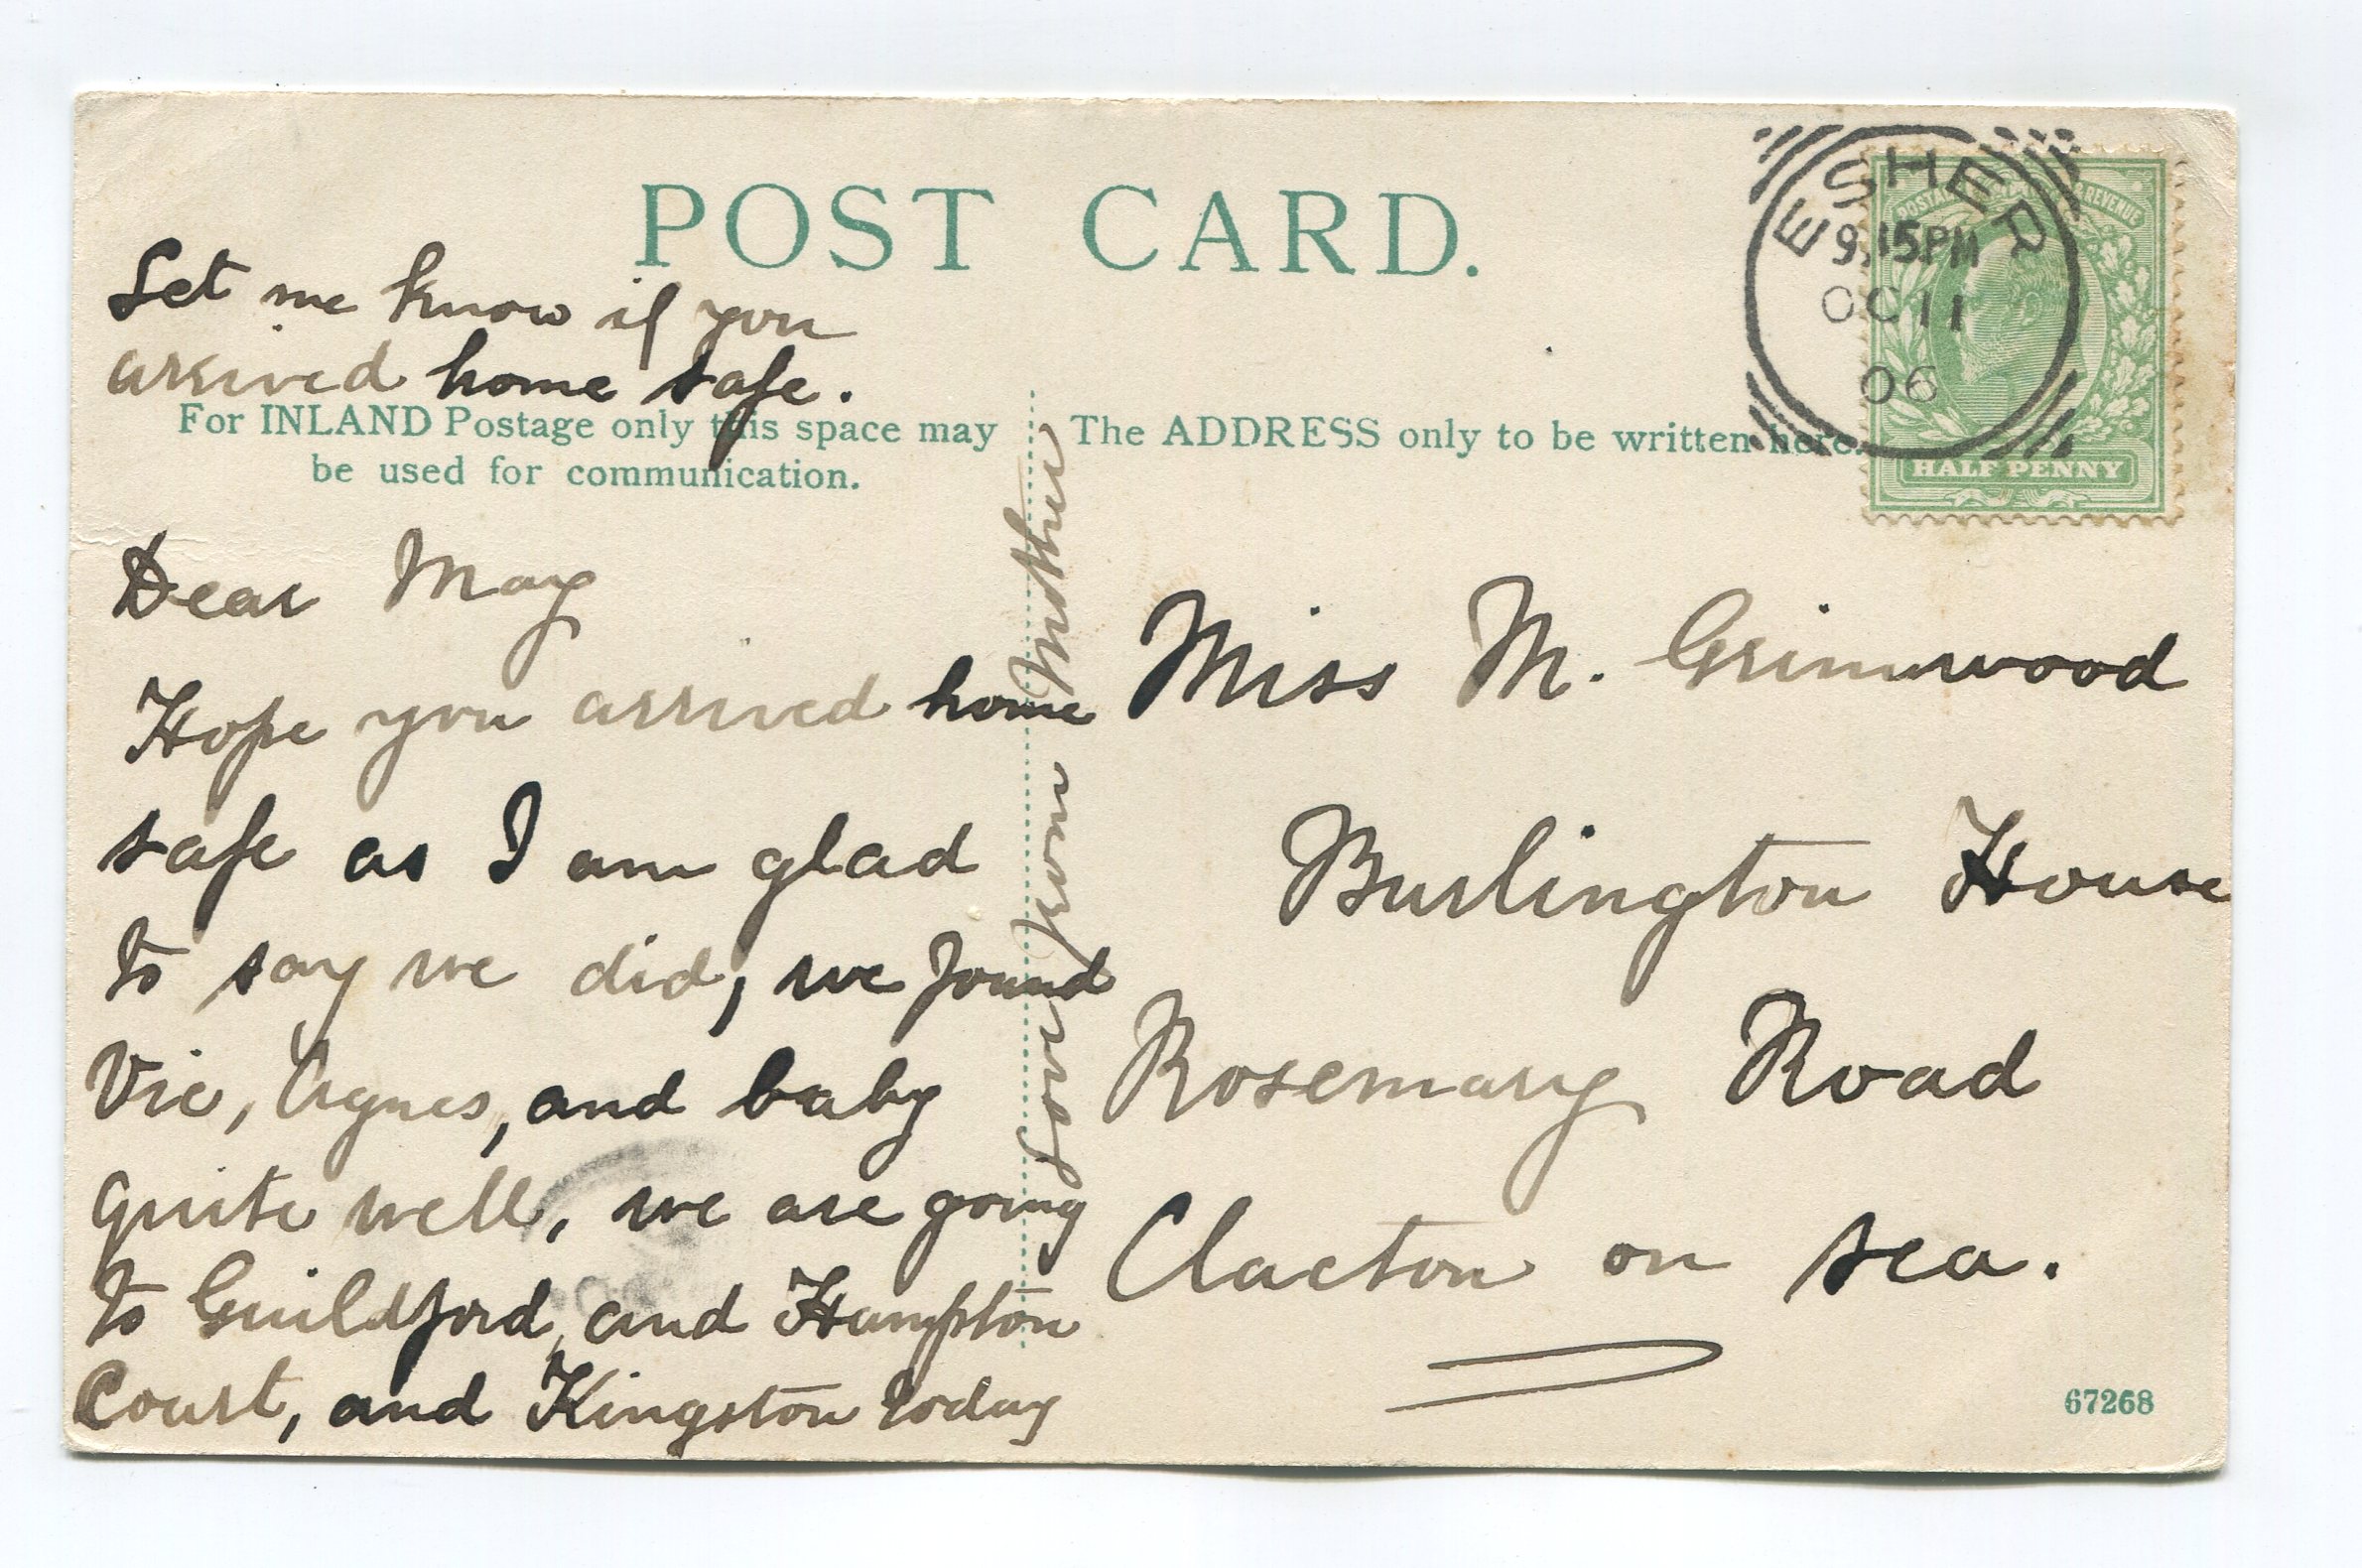 POST CARD.
Let me know if you
arrived home safe.
For INLAND Postage only this space may
be used for communication.
Dear May
Hope you arrived home
safe as I am glad
to say we did, we found
Vic, Agnes, and baby
quite well, we are going
to Guildford, and Hampton
Court, and Kingston today
Love from Mother
The ADDRESS only to be written here.
Miss M. Grimwood
Burlington House
Rosemary Road
Clacton on sea.
67268
ESHER
9.15PM
OC 11
06
POSTAGE & REVENUE
HALF PENNY